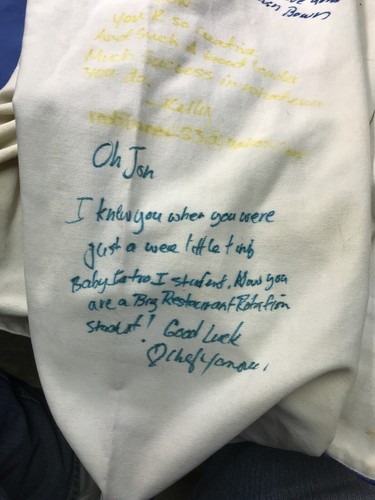 Bown
you R so creative
And such a good leader
Much success in
you do
- Kelly
Oh Jon
I knew you when you were
just a wee little
Baby Intro I student. Now you
are a Big Restaurant Rotation
student! Good Luck
♡Chef